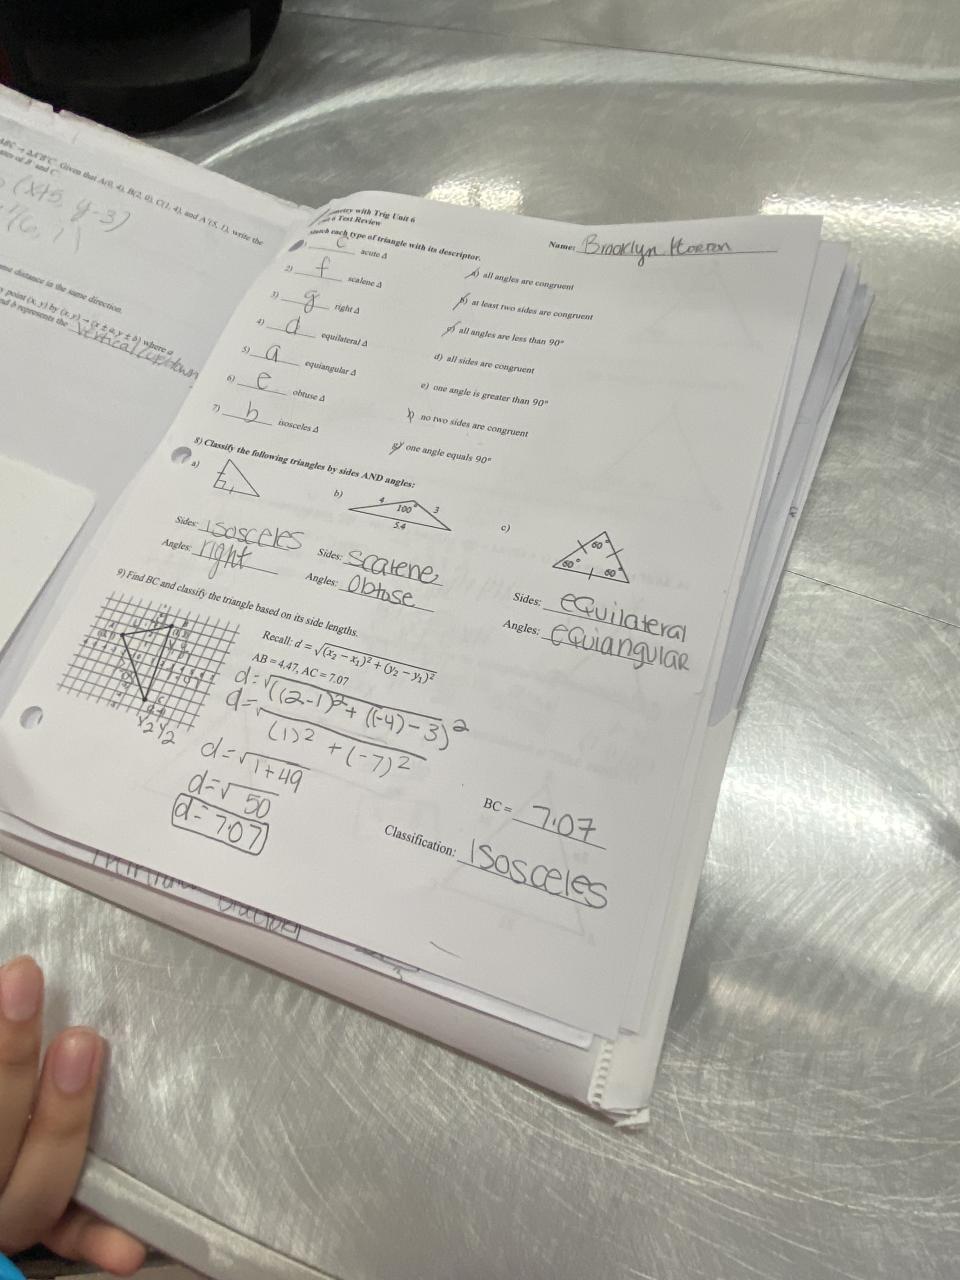 ABC → ΔA'B'C'. Given that A(0, 4), B(2, 0), C(1, 4), and A'(5, 1), write the
(x+5, y-3)
same distance in the same direction.
point (x, y) by (x, y) → (x ± a, y ± b) where a
b represents the vertical(up/down
with Trig Unit 6
Test Review
Name: Brooklyn
Match each type of triangle with its descriptor.
c acute Δ
a) all angles are congruent
2) f scalene Δ
b) at least two sides are congruent
3) g right Δ
c) all angles are less than 90°
4) d equilateral Δ
d) all sides are congruent
5) a equiangular Δ
e) one angle is greater than 90°
6) e obtuse Δ
no two sides are congruent
7) b isosceles Δ
g) one angle equals 90°
8) Classify the following triangles by sides AND angles:
a)
b)
4 100° 3
5.4
c)
60°
60° 60°
Sides: isosceles
Angles: right
Sides: scalene
Angles: obtuse
Sides: equilateral
Angles: equiangular
9) Find BC and classify the triangle based on its side lengths.
Recall: d = √(x₂ − x₁)² + (y₂ − y₁)²
AB = 4.47, AC = 7.07
d=√((2-1)²+((-4)-3)²
d=√(1)²+(-7)²
d=√1+49
d=√50
d=7.07
BC = 7.07
Classification: isosceles